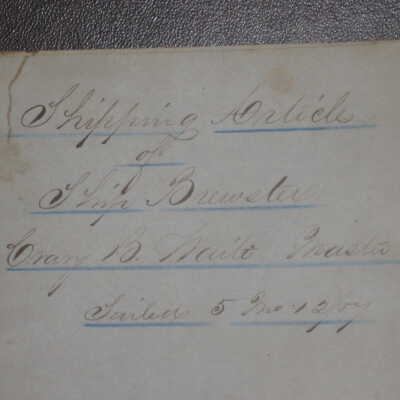 Shipping Article
of
Ship Brewster
Crary B. Waite Master
Sailed 5 Mo 12